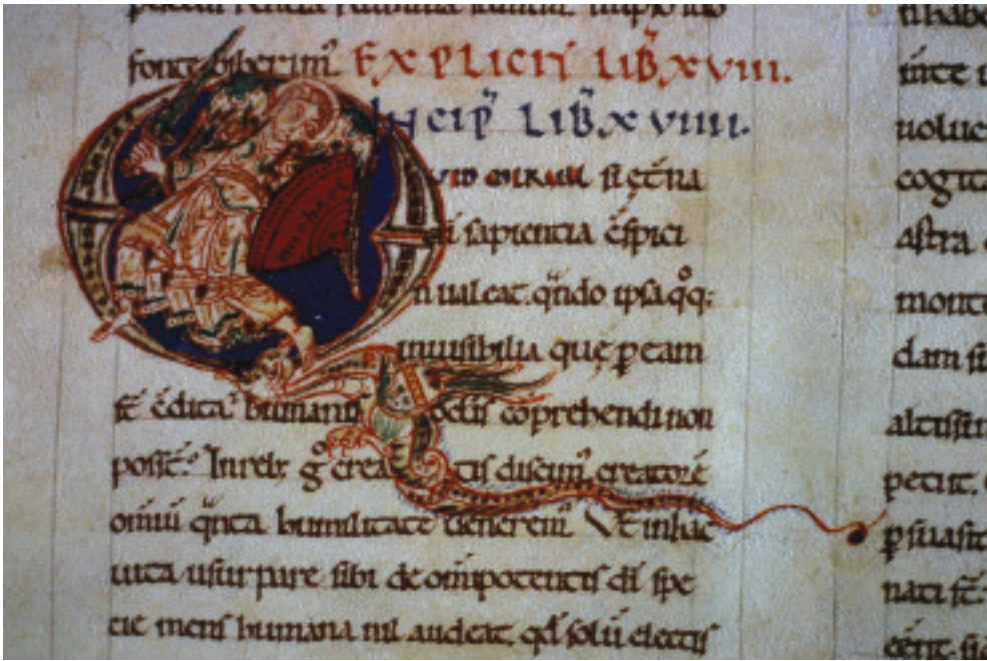 fonte biberim̄ EXPLICIT LIB̄ XVIII.
INCIP̄ LIB̄ XVIIII.
QUID MIRUM si et̄na
dei sapientia c̄spici
n ualeat. qn̄do ipsa qq:
inuisibilia quę p eam
st̄ c̄dita. humanis oculis cōprehendi non
poss̄t? In reb; g̊ creatis discim̄, creatorē
omīū qn̄ta humilitate uenerem̄. Vt in hac
uita usurpare sibi de omīpotentis dī spe
cie mens humana nil audeat. qd̄ solū electis
uoluc
cogita
astra
monte
dam
altissi
petiit.
nati st̄: